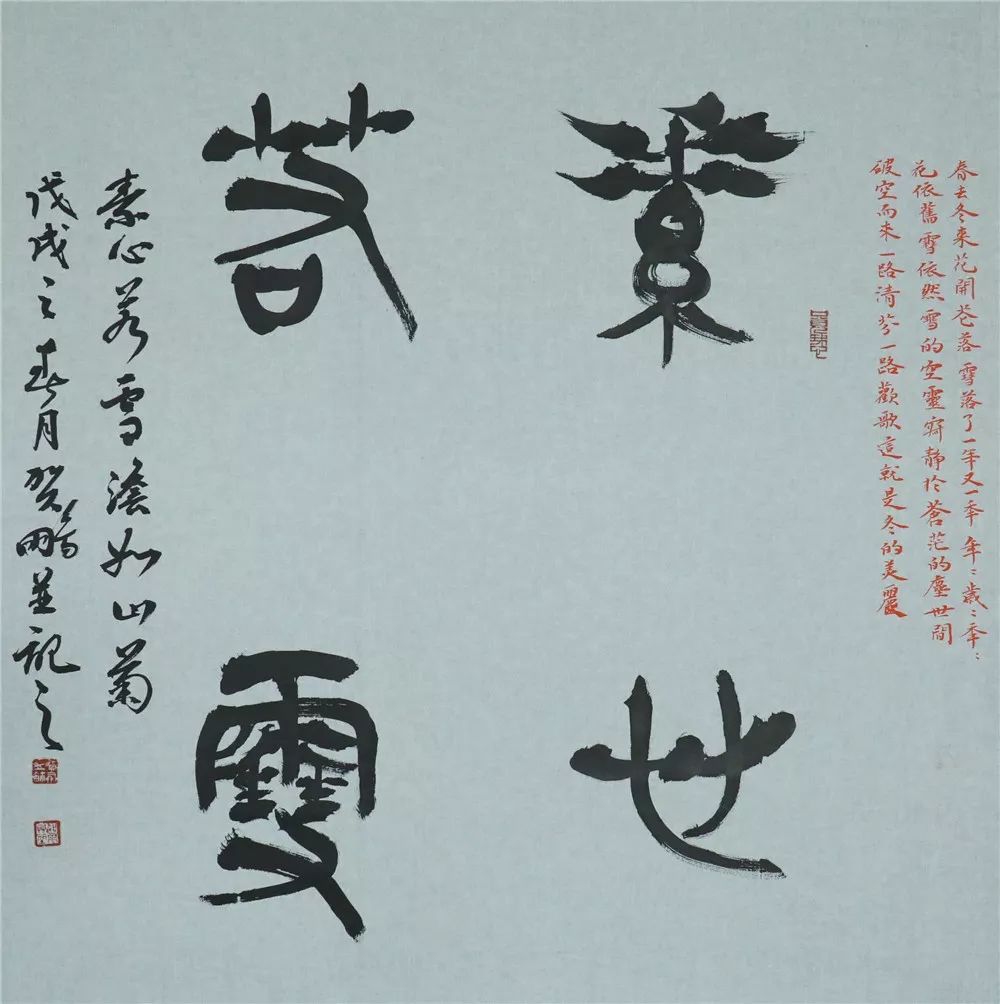 春去冬来花開花落雪落了一年又一季年〻歲〻季〻
花依舊雪依然雪的空靈寂静於蒼茫的塵世間
破空而来一路清芬一路歡歌這就是冬的美麗
素世
若雪
素心若雪澹如山菊
戊戌之春月賀鵬並記之